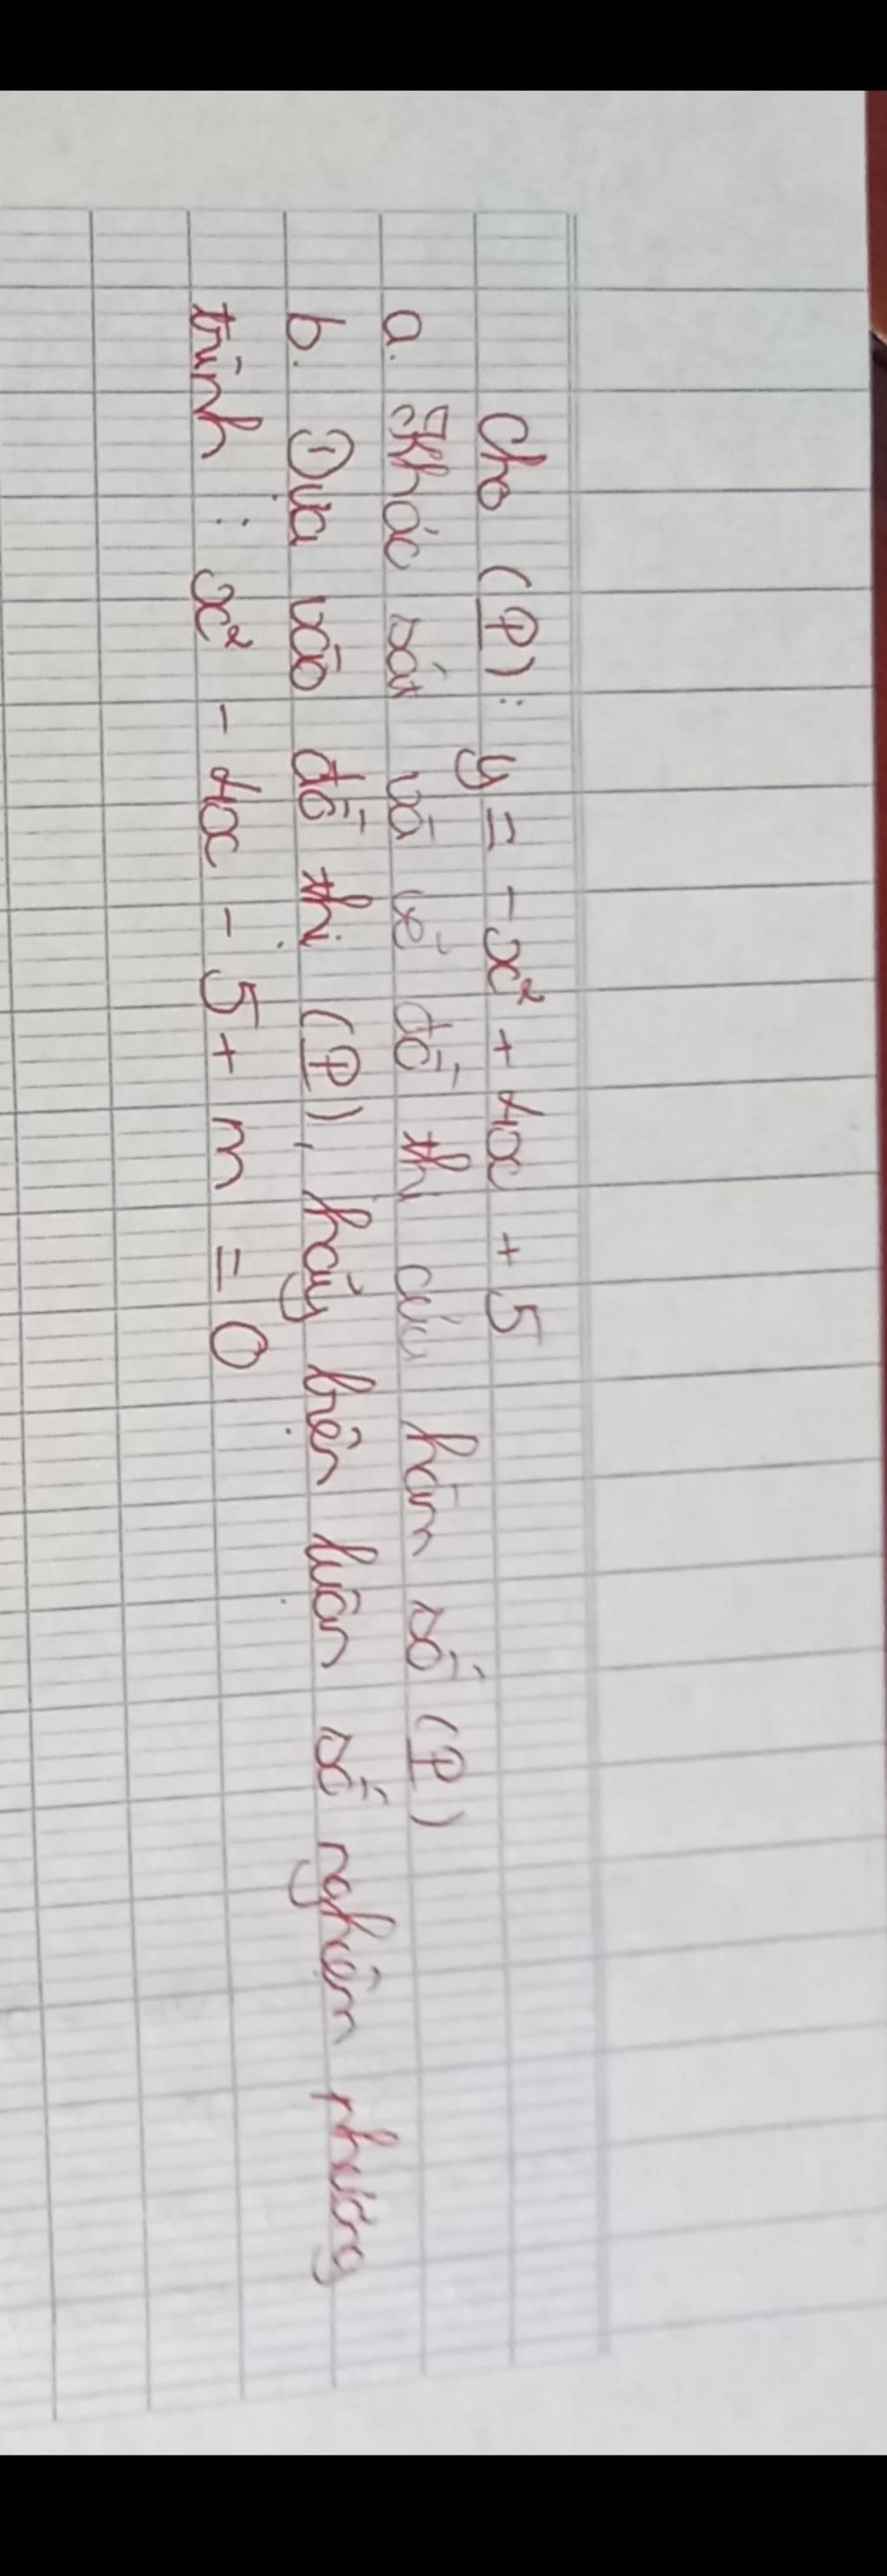 Cho (P): y = -x² + 4x + 5
a. Khảo sát và vẽ đồ thị của hàm số (P)
b. Dựa vào đồ thị (P), hãy biện luận số nghiệm phương
trình : x² - 4x - 5 + m = 0